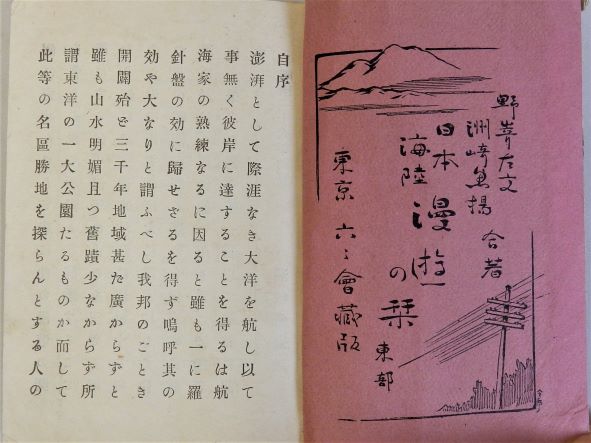 野崎左文
洲崎魚揚
合著
日本
海陸
漫遊の栞
東部
東京 六々會藏版
自序
澎湃として際涯なき大洋を航し以て
事無く彼岸に達することを得るは航
海家の熟練なるに因ると雖も一に羅
針盤の効に歸せざるを得ず嗚呼其の
効や大なりと謂ふべし我邦のごとき
開闢殆ど三千年地域甚た廣からずと
雖も山水明媚且つ舊蹟少なからず所
謂東洋の一大公園たるものか而して
此等の名區勝地を探らんとする人の